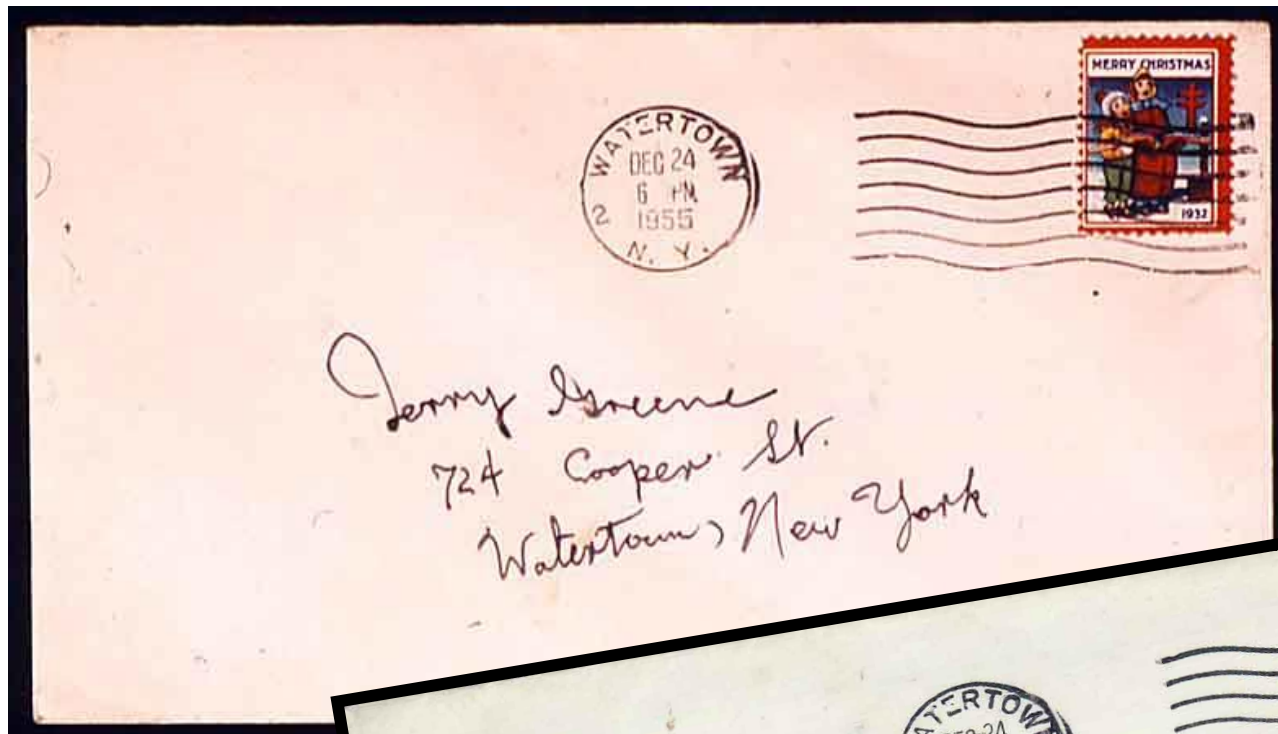 MERRY CHRISTMAS
1932
WATERTOWN
DEC 24
6 PM
1955
2 N. Y.
Jerry Greene
724 Cooper St.
Watertown, New York
WATERTOWN
DEC 24